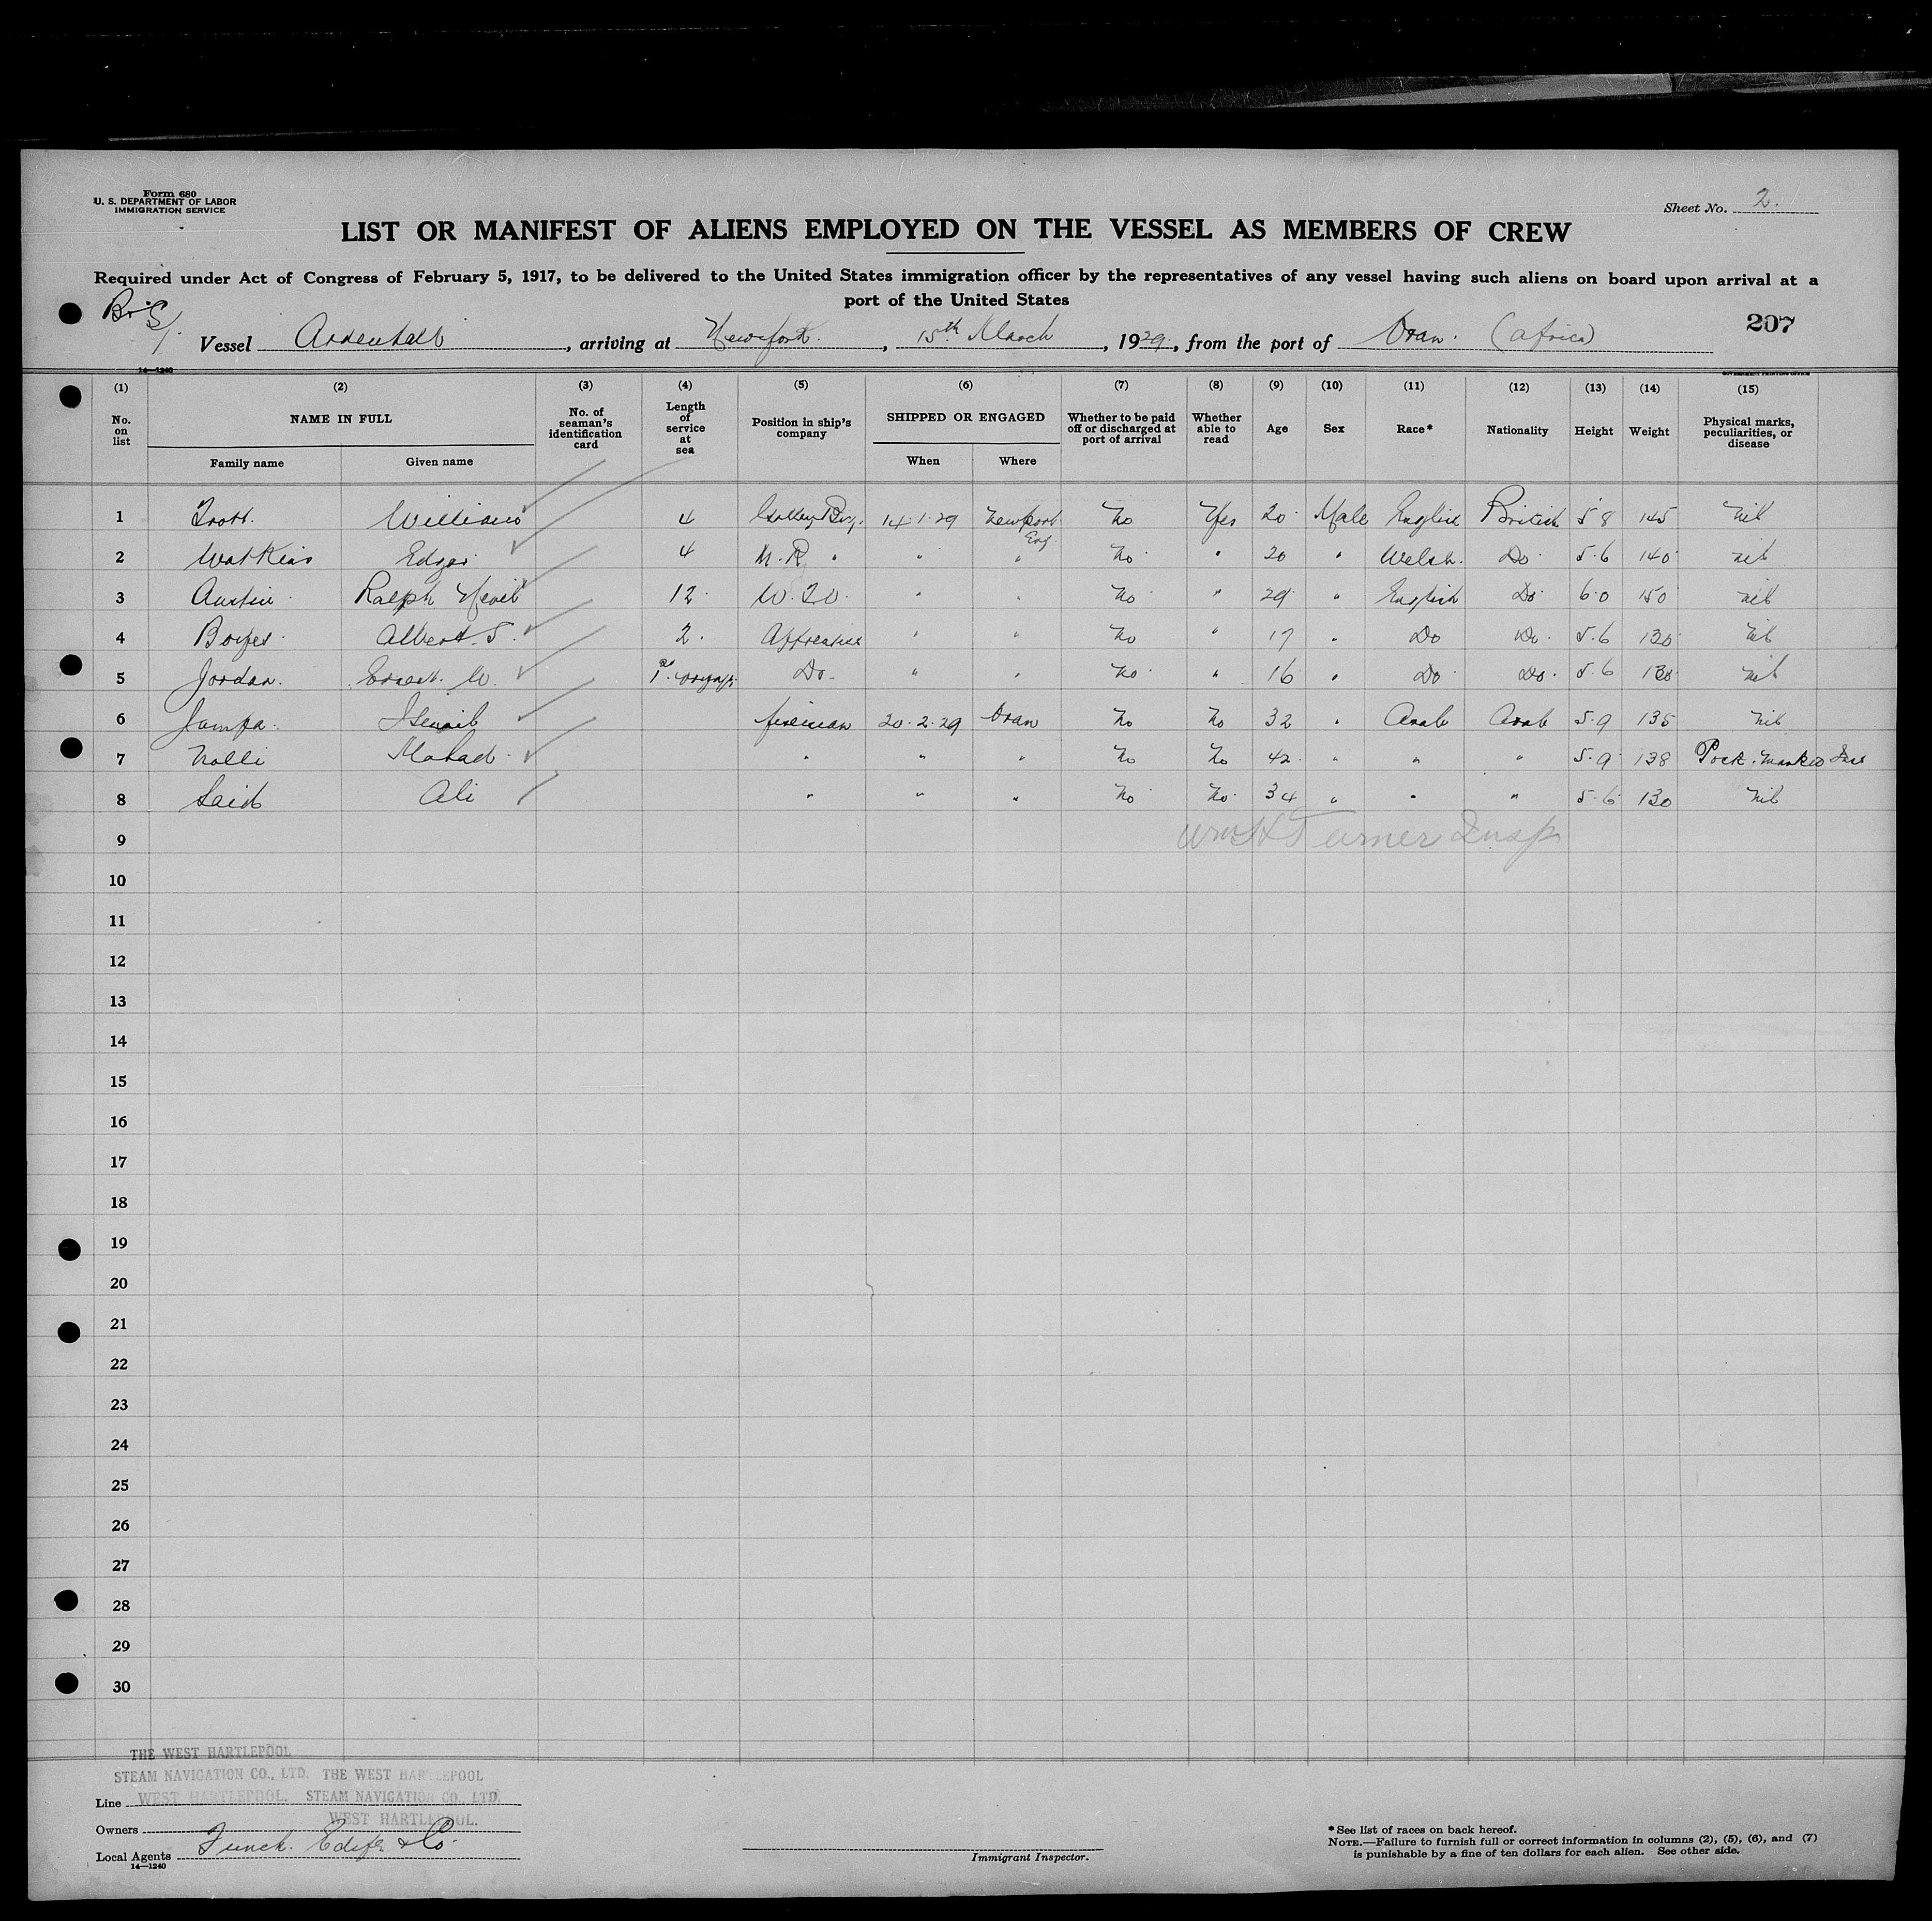 Form 680
U. S. DEPARTMENT OF LABOR
IMMIGRATION SERVICE
Sheet No. 2.
LIST OR MANIFEST OF ALIENS EMPLOYED ON THE VESSEL AS MEMBERS OF CREW
Required under Act of Congress of February 5, 1917, to be delivered to the United States immigration officer by the representatives of any vessel having such aliens on board upon arrival at a
port of the United States
207
Vessel, arriving at New York, 15th March, 1929, from the port of Oran. (Africa)
14—1240
(1) (2) (3) (4) (5) (6) (7) (8) (9) (10) (11) (12) (13) (14) (15)
No. on list NAME IN FULL No. of seaman's identification card Length of service at sea Position in ship's company SHIPPED OR ENGAGED Whether to be paid off or discharged at port of arrival Whether able to read Age Sex Race* Nationality Height Weight Physical marks, peculiarities, or disease
Family name Given name When Where
1 Trott. William 4 Galley Boy. 14.1.29 Newport Eng. No Yes 20 Male English British 5 8 145 nil
2 Watkins Edgar 4 M. R " " " No " 20 " Welsh. Do 5.6 140 nil
3 Austin Ralph Nevil 12 W. T. O. " " No " 29 " English Do 6.0 150 nil
4 Albert S. 2. Apprentice " " No " 17 " Do Do 5.6 130 nil
5 Jordan. Ernest. W. 1st voyage Do " " No " 16 " Do Do 5.6 130 nil
6 fireman 20.2.29 Oran No No 32 " Arab Arab 5.9 135 nil
7 " " " No No 42 " " " 5.9 138 Pock. marked face
8 Said Ali " " " No No 34 " " " 5.6 130 nil
9 Wm H Turner Insp
10
11
12
13
14
15
16
17
18
19
20
21
22
23
24
25
26
27
28
29
30
THE WEST HARTLEPOOL
STEAM NAVIGATION CO., LTD. THE WEST HARTLEPOOL
Line WEST HARTLEPOOL. STEAM NAVIGATION CO., LTD.
Owners WEST HARTLEPOOL.
Local Agents Funch. Edye & Co.
14—1240
Immigrant Inspector.
*See list of races on back hereof.
NOTE.—Failure to furnish full or correct information in columns (2), (5), (6), and (7)
is punishable by a fine of ten dollars for each alien. See other side.